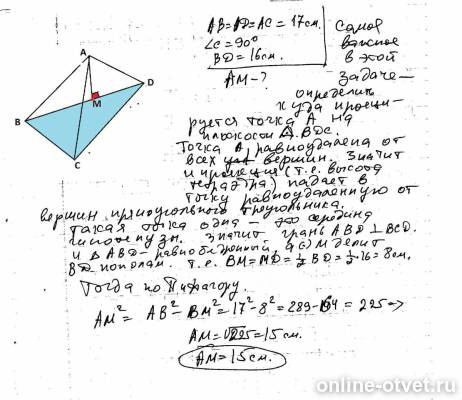 A
B
C
D
M
AB=AD=AC=17см.
∠C=90°
BD=16см.
AM-?
Самое
важное
в этой
задаче —
определить
куда проеци-
руется точка A на
плоскости △BDC.
Точка A равноудалена от
всех вершин. Значит
и проекция (т.е. высота
тетраэдра) падает в
точку равноудаленную от
вершин прямоугольного треугольника.
Такая точка одна — это середина
гипотенузы. Значит грань ABD ⊥ BCD.
и △ABD - равнобедренный, M делит
BD пополам. т.е. BM=MD=½BD=½·16=8см.
Тогда по Пифагору.
AM²= AB²-BM²=17²-8²=289-64=225=>
AM=√225=15см.
AM=15см.
online-otvet.ru